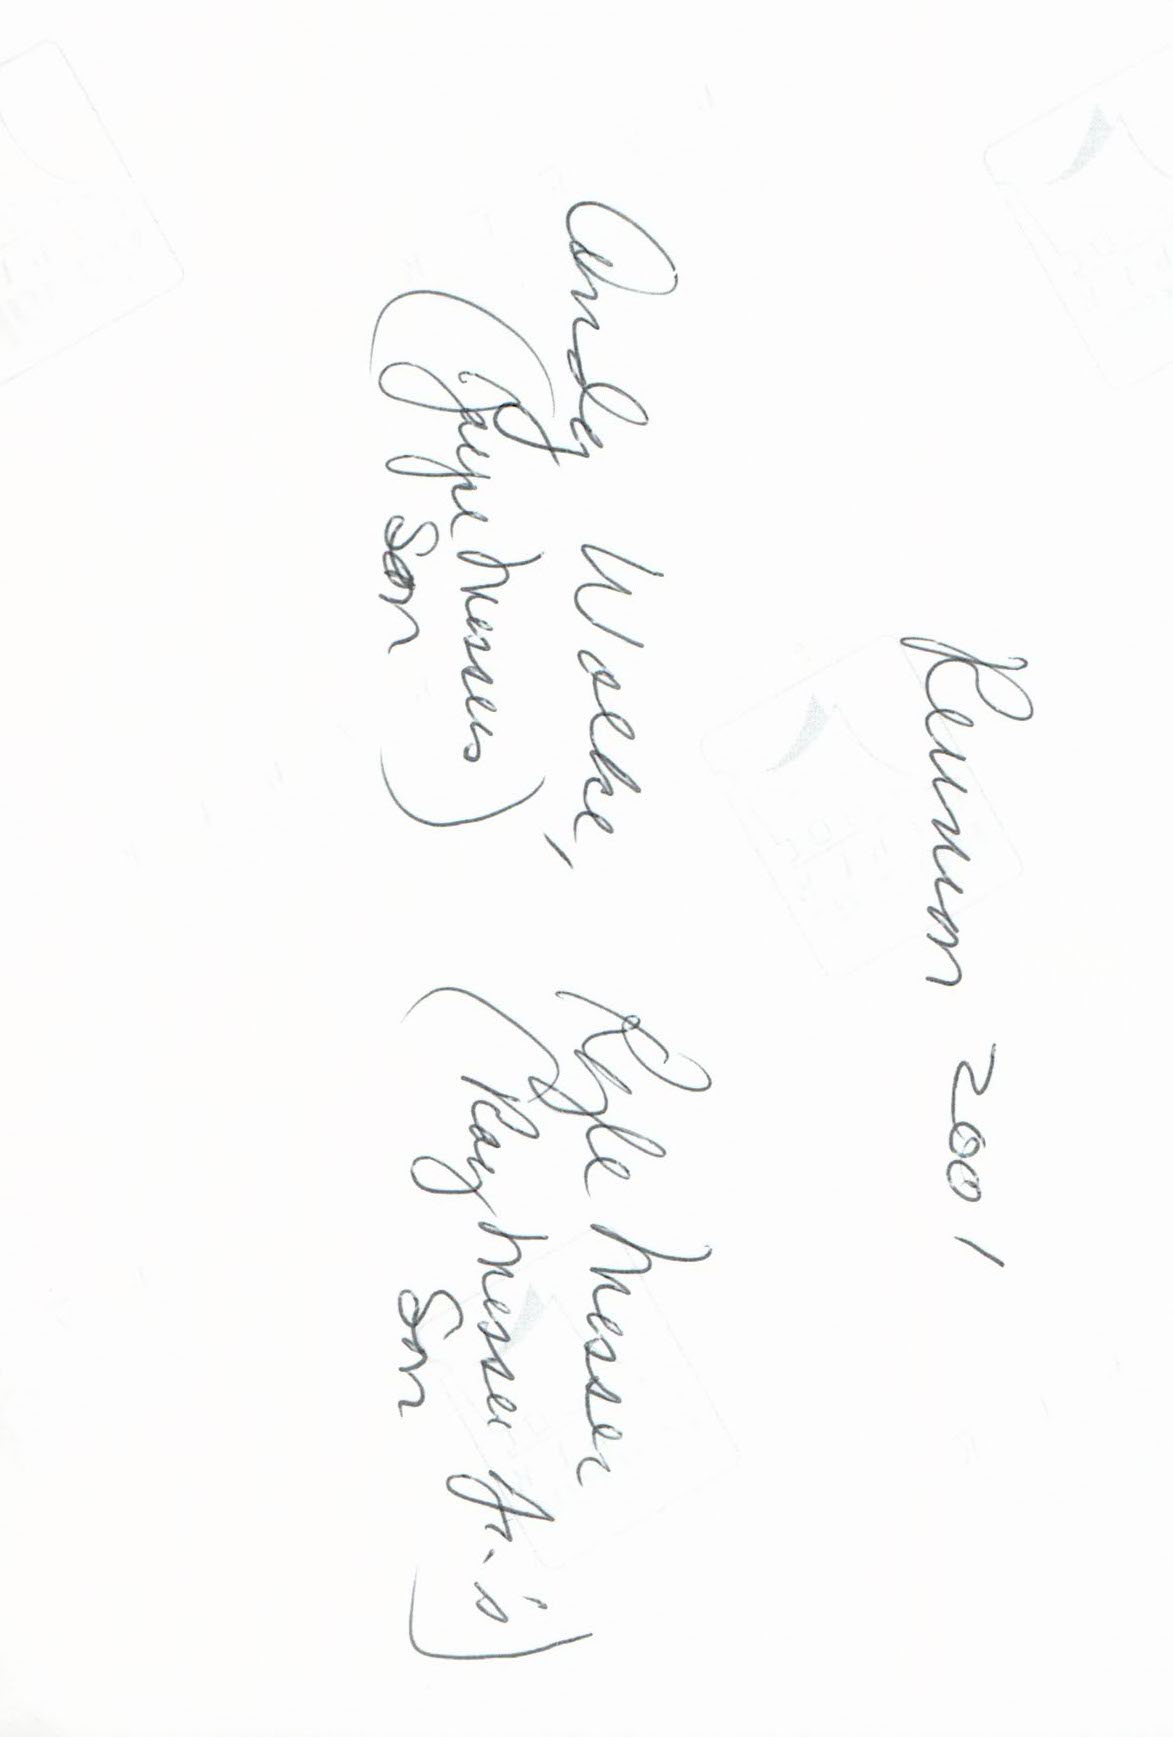 Reunion 2001
Andy Wolke, Kyle Messer
(Jayne Messer's (Ray Messer Jr.'s)
Son Son